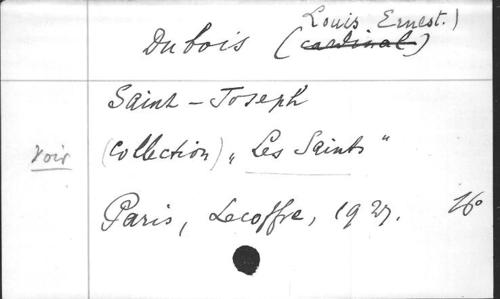 Louis Ernest.)
Dubois (cardinal)
Saint-Joseph
Voir (collection) „ Les Saints "
Paris, Lecoffre, 1927. 16°